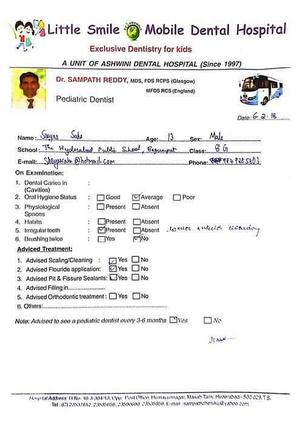 Little Smile Mobile Dental Hospital
Exclusive Dentistry for kids
A UNIT OF ASHWINI DENTAL HOSPITAL (Since 1997)
Dr. SAMPATH REDDY, MDS, FDS RCPS (Glasgow)
MFDS RCS (England)
Pediatric Dentist
Date: 6.2.18
Name: Age: 13 Sex: Male
School: The Hyderabad Public School, Begumpet Class: 8 G
E-mail: @hotmail.com Phone:
On Examination:
1. Dental Caries in (Cavities) :
2. Oral Hygiene Status : Good Average Poor
3. Physiological Spaces : Present Absent
4. Habits : Present Absent
5. Irregular teeth : Present Absent
6. Brushing twice : Yes No
Adviced Treatment:
1. Advised Scaling/Cleaning : Yes No
2. Advised Flouride application: Yes No
3. Advised Pit & Fissure Sealants: Yes No
4. Advised Filling in
5. Advised Orthodontic treatment : Yes No
6. Others
Note: Advised to see a pediatric dentist every 3-6 months Yes No